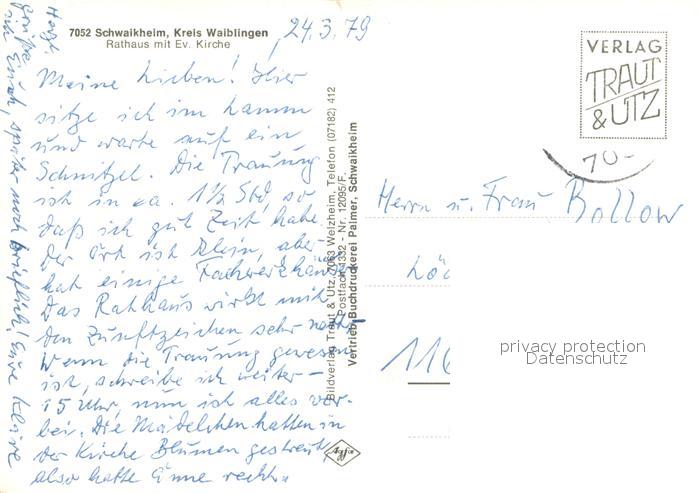 7052 Schwaikheim, Kreis Waiblingen
Rathaus mit Ev. Kirche
24.3.79
Meine Lieben! Hier
sitze ich im Lamm
und warte auf ein
Schnitzel. Die Trauung
ist in ca. 1½ Std, so
daß ich gut Zeit habe.
Der Ort ist klein, aber
hat einige Fachwerkhäuser
Das Rathaus wirkt mit
den Zunftzeichen sehr nett.
Wenn die Trauung gewesen
ist, schreibe ich weiter –
15 Uhr, nun ist alles vor-
bei. Die Mädelchen hatten in
der Kirche Blumen gestreut,
also hatte Änne recht.
Herzl.
Grüße
Euch, später noch brieflich! Eure Kläre
Bildverlag Traut & Utz, 7063 Welzheim, Telefon (07182) 412
Postfach 1332 - Nr. 12095/F.
Vertrieb: Buchdruckerei Palmer, Schwaikheim
Agfa
VERLAG
TRAUT
& UTZ
70-
Herrn u. Frau Bollow
116
privacy protection
Datenschutz